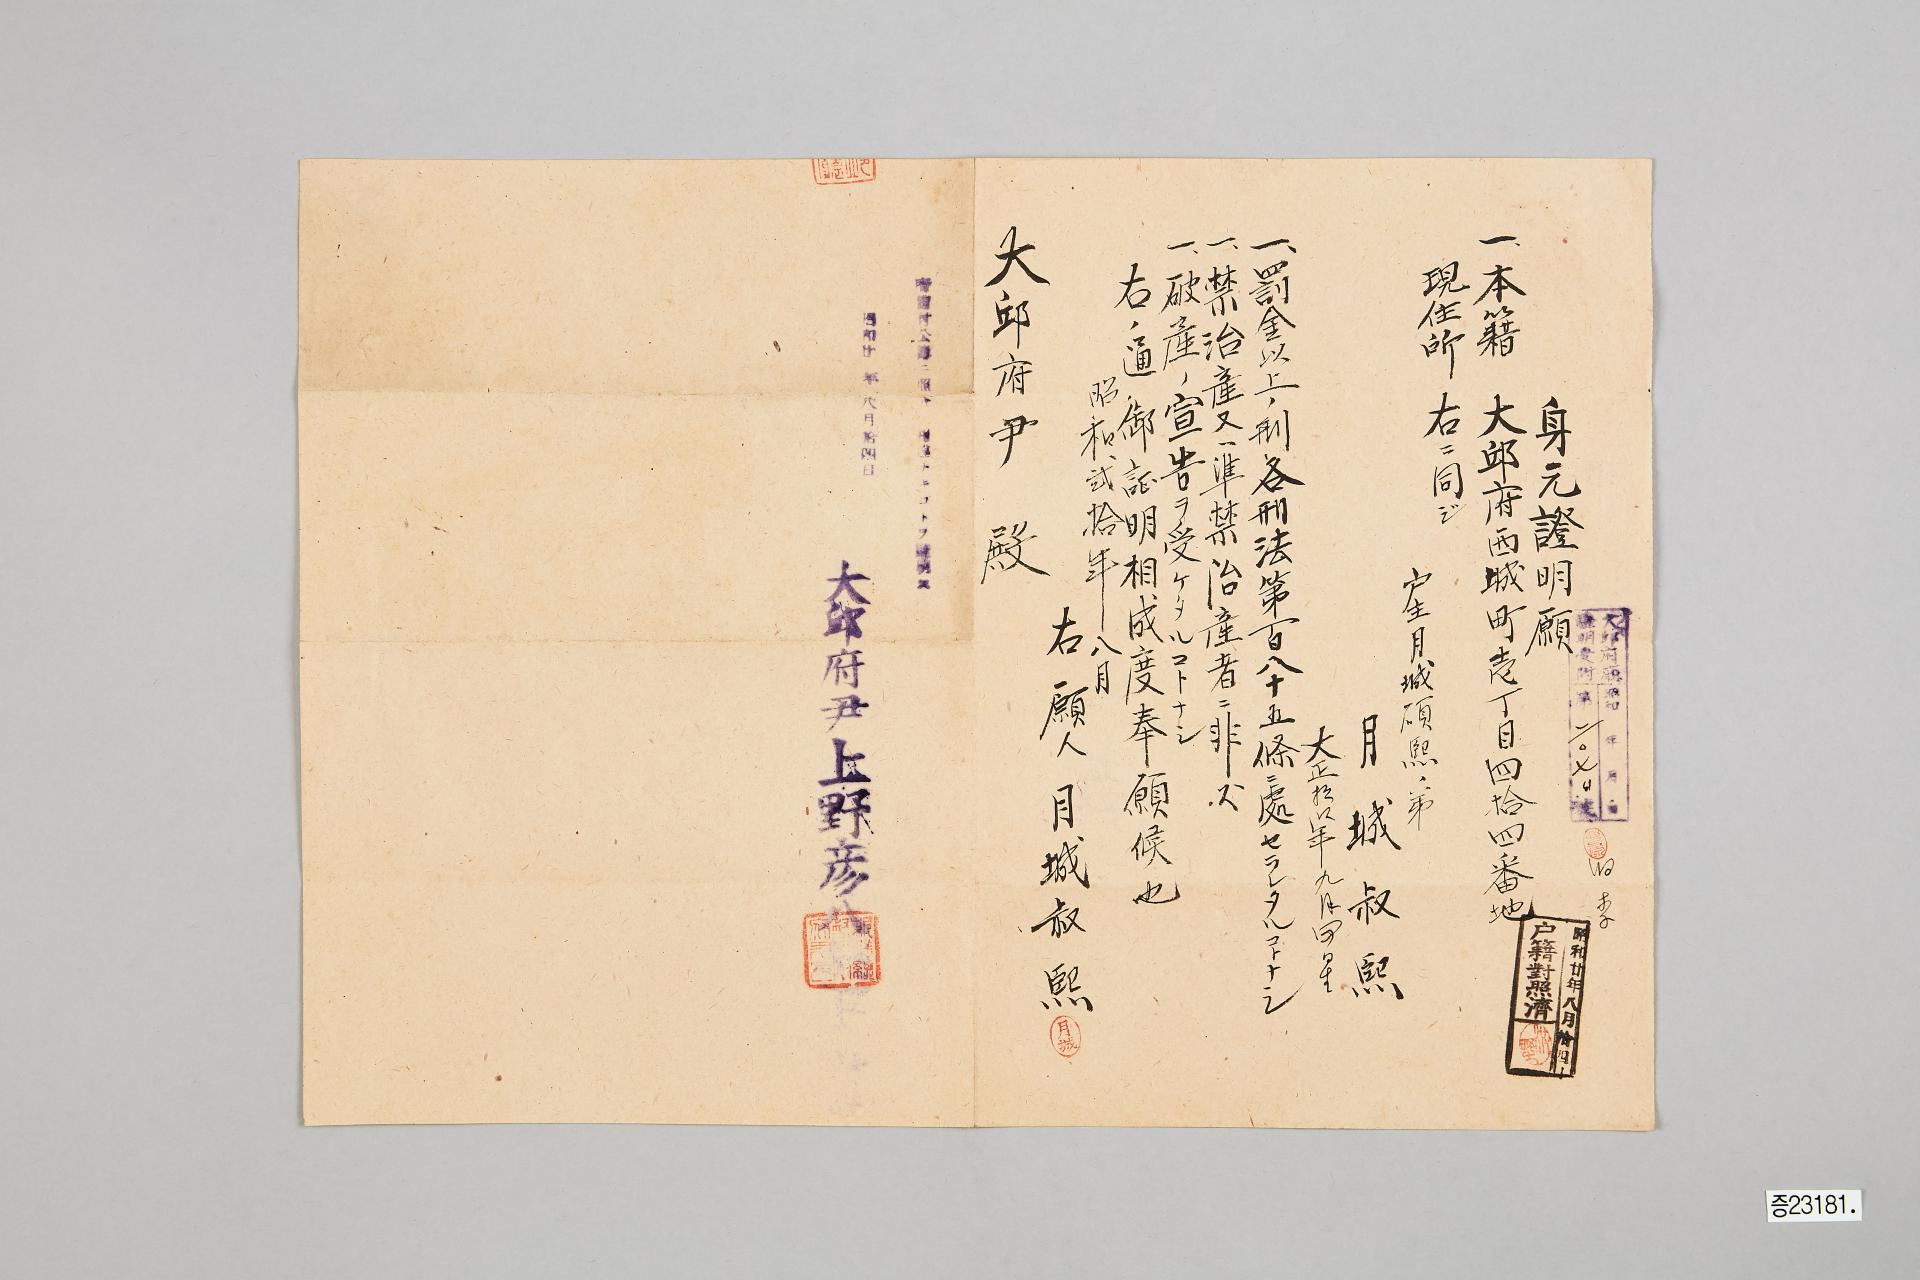 身元證明願
一、本籍 大邱府西城町壱丁目四拾四番地
現住所 右ニ同ジ
戸主月城碩熙ノ弟
月城叔熙
大正拾四年九月四日生
一、罰金以上ノ刑各刑法第百八十五條ニ處セラレタルコトナシ
一、禁治産又ハ準禁治産者ニ非ズ
一、破産ノ宣告ヲ受ケタルコトナシ
右ノ通御証明相成度奉願候也
昭和弐拾年八月
右願人 月城叔熙
月城
大邱府尹 殿
昭和廿年八月拾四日
戸籍對照濟
昭和廿年八月拾四日
大邱府尹 上野彦八
증23181.